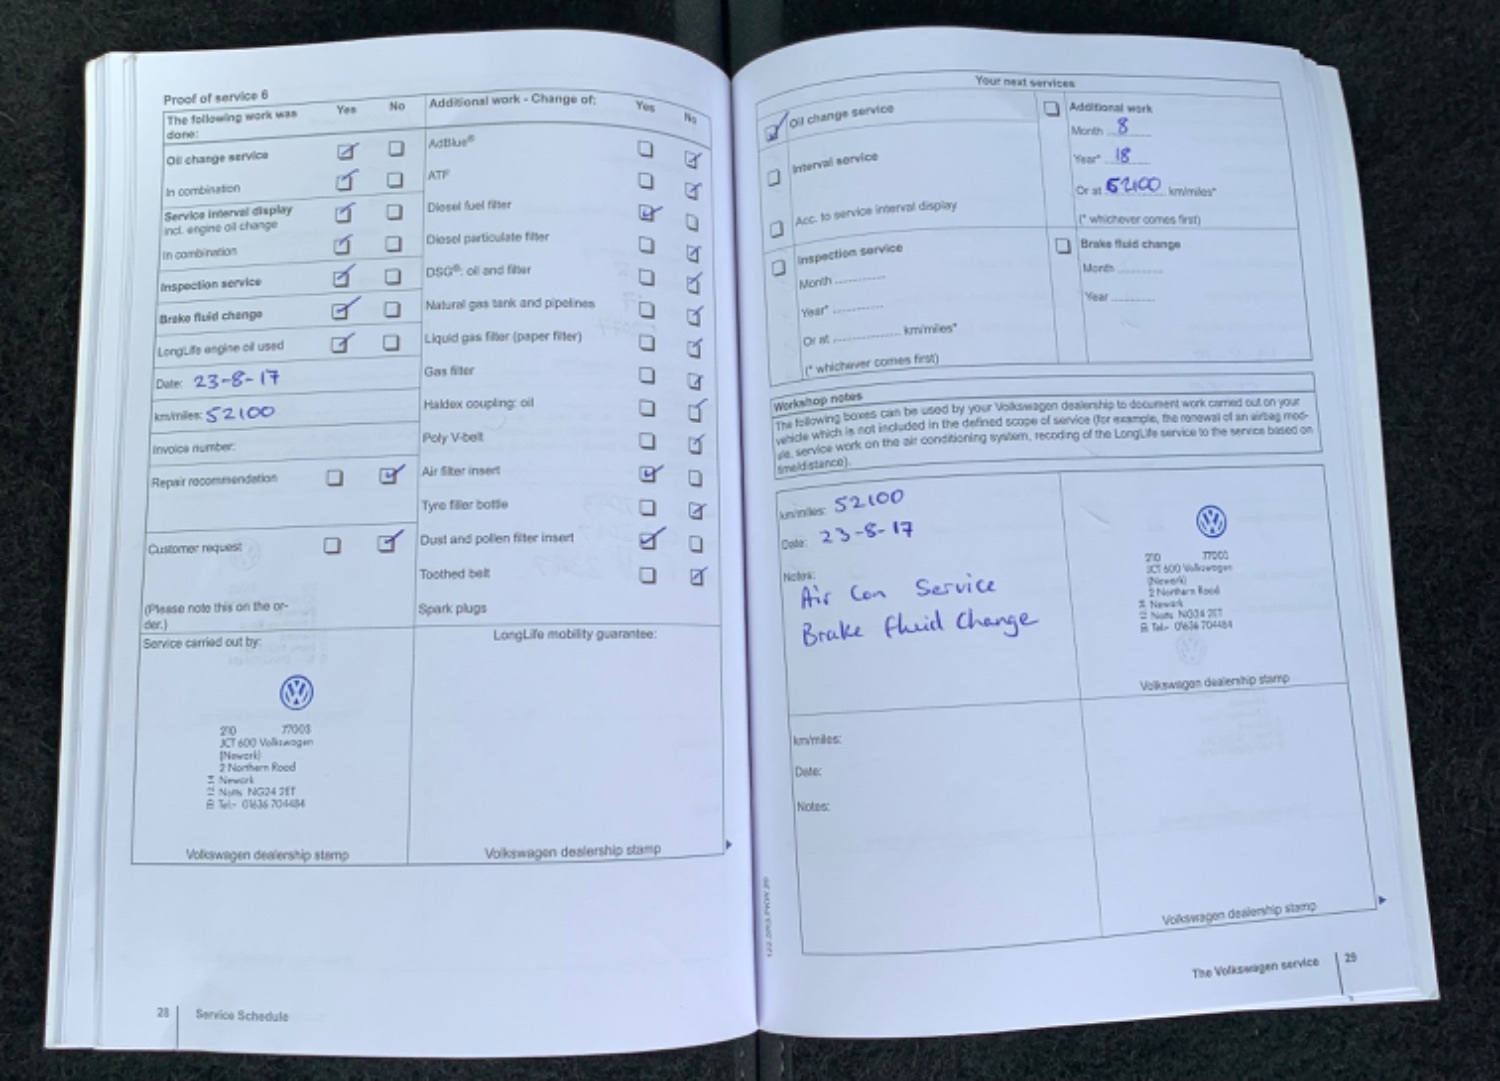 Proof of service 6
The following work was done: Yes No
Oil change service
In combination
Service interval display
incl. engine oil change
In combination
Inspection service
Brake fluid change
LongLife engine oil used
Date: 23-8-17
km/miles: 52100
Invoice number:
Repair recommendation
Customer request
(Please note this on the or-
der.)
Additional work - Change of: Yes No
AdBlue®
ATF
Diesel fuel filter
Diesel particulate filter
DSG®: oil and filter
Natural gas tank and pipelines
Liquid gas filter (paper filter)
Gas filter
Haldex coupling: oil
Poly V-belt
Air filter insert
Tyre filler bottle
Dust and pollen filter insert
Toothed belt
Spark plugs
Service carried out by:
210 77003
JCT 600 Volkswagen
(Newark)
2 Northern Road
Newark
Notts NG24 2ET
Tel:- 01636 704484
Volkswagen dealership stamp
LongLife mobility guarantee:
Volkswagen dealership stamp
28 Service Schedule
Your next services
Oil change service
Interval service
Acc. to service interval display
Inspection service
Month
Year*
Or at km/miles*
(* whichever comes first)
Additional work
Month 8
Year* 18
Or at 62100 km/miles*
(* whichever comes first)
Brake fluid change
Month
Year
Workshop notes
The following boxes can be used by your Volkswagen dealership to document work carried out on your
vehicle which is not included in the defined scope of service (for example, the renewal of an airbag mod-
ule, service work on the air conditioning system, recoding of the LongLife service to the service based on
time/distance).
km/miles: 52100
Date: 23-8-17
Notes:
Air Con Service
Brake fluid Change
210 77003
JCT 600 Volkswagen
(Newark)
2 Northern Road
Newark
Notts NG24 2ET
Tel:- 01636 704484
Volkswagen dealership stamp
km/miles:
Date:
Notes:
Volkswagen dealership stamp
The Volkswagen service 29